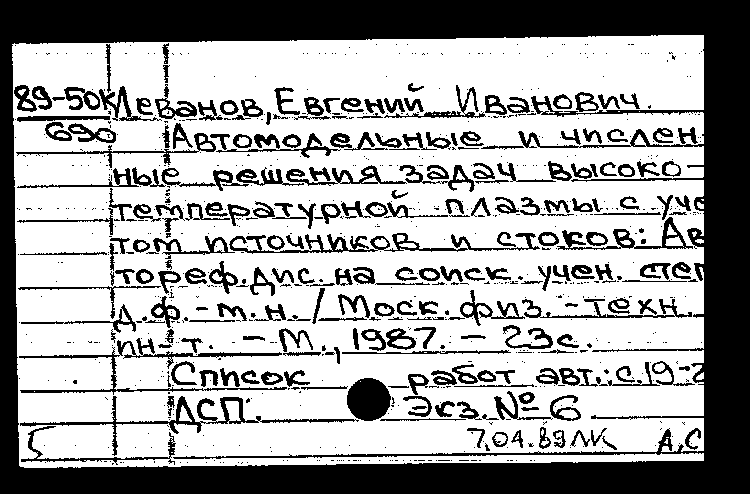 89-50К Леванов, Евгений Иванович.
690 Автомодельные и числен
ные решения задач высоко-
температурной плазмы с уче
том источников и стоков: Ав
тореф. дис. на соиск. учен. степ
д.ф.-м.н. / Моск. физ.-техн.
ин-т. - М., 1987. - 23с.
Список работ авт.: с. 19-2
ДСП. Экз. № 6.
5 7.04.89 ЛК А,С